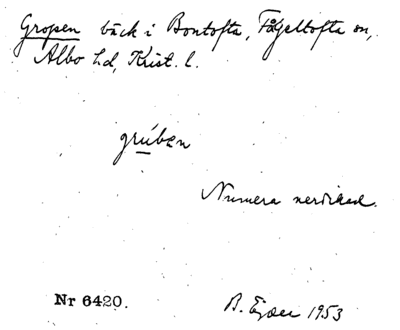 Gropen bäck i Bontofta, Fågeltofta sn,
Albo hd, Krist. l.
grúben
Numera nerdikad.
Nr 6420.
B. Ejder 1953